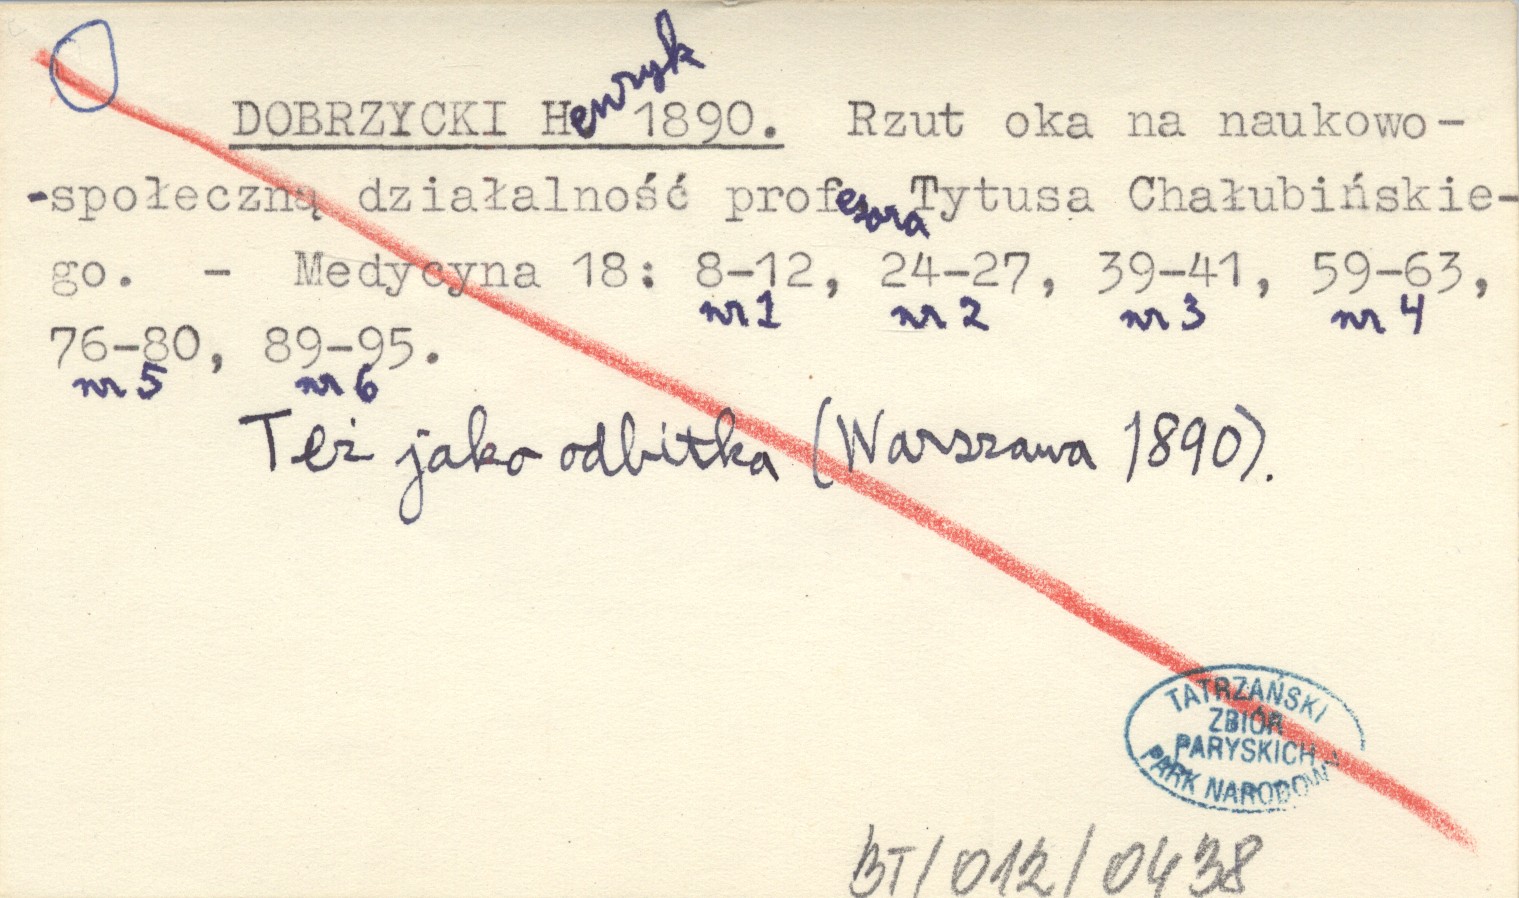 DOBRZYCKI Henryk 1890. Rzut oka na naukowo-
-społeczną działalność profesora Tytusa Chałubińskie-
go. - Medycyna 18: 8-12, 24-27, 39-41, 59-63,
nr 1 nr 2 nr 3 nr 4
76-80, 89-95.
nr 5 nr 6
Też jako odbitka (Warszawa 1890).
TATRZAŃSKI
ZBIÓR
PARYSKICH
PARK NARODOWY
BT/012/0438